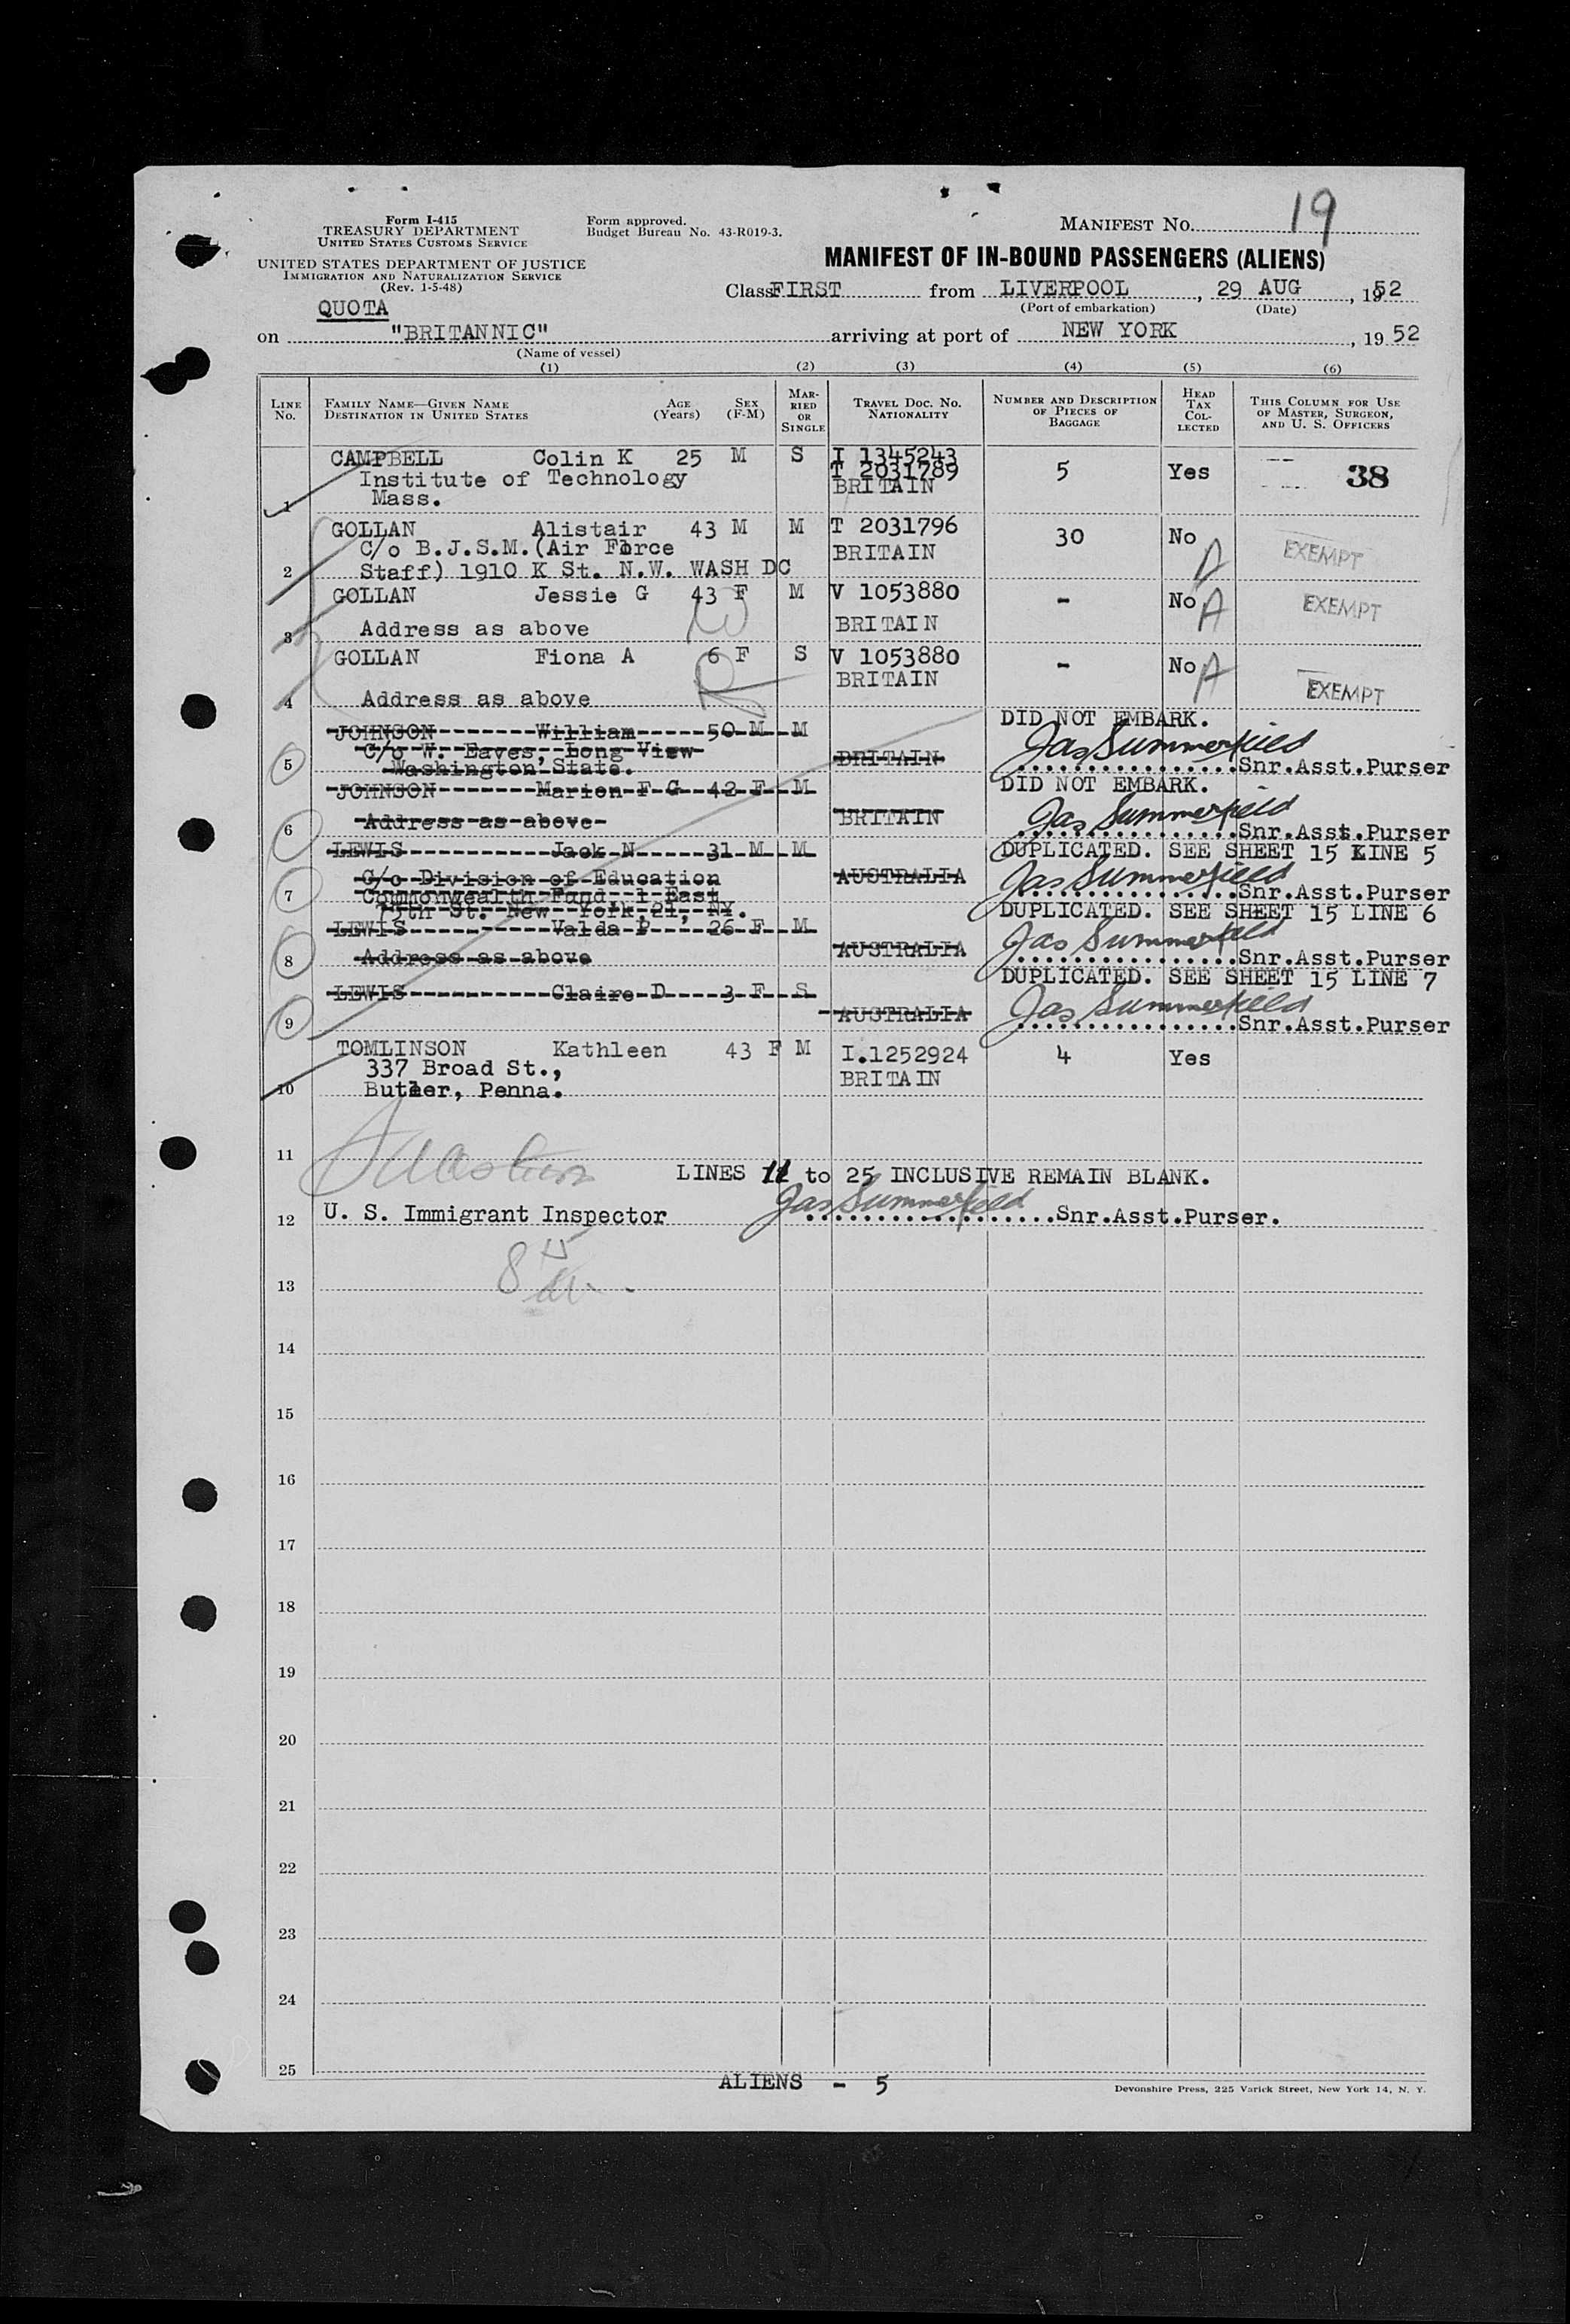 Form I-415
TREASURY DEPARTMENT
UNITED STATES CUSTOMS SERVICE
Form approved.
Budget Bureau No. 43-R019-3.
MANIFEST NO. 19
UNITED STATES DEPARTMENT OF JUSTICE
IMMIGRATION AND NATURALIZATION SERVICE
(Rev. 1-5-48)
MANIFEST OF IN-BOUND PASSENGERS (ALIENS)
Class FIRST from LIVERPOOL, 29 AUG, 1952
(Port of embarkation) (Date)
QUOTA
on "BRITANNIC" arriving at port of NEW YORK, 19 52
(Name of vessel)
(1) (2) (3) (4) (5) (6)
LINE No. FAMILY NAME—GIVEN NAME DESTINATION IN UNITED STATES AGE (Years) SEX (F-M) MARRIED OR SINGLE TRAVEL DOC. NO. NATIONALITY NUMBER AND DESCRIPTION OF PIECES OF BAGGAGE HEAD TAX COLLECTED THIS COLUMN FOR USE OF MASTER, SURGEON, AND U. S. OFFICERS
CAMPBELL Colin K 25 M S I 1345243
T 2031789
Institute of Technology BRITAIN 5 Yes 38
1 Mass.
GOLLAN Alistair 43 M M T 2031796 30 No
C/o B.J.S.M.(Air Force BRITAIN A EXEMPT
2 Staff) 1910 K St. N.W. WASH DC
GOLLAN Jessie G 43 F M V 1053880 - No A EXEMPT
3 Address as above BRITAIN
GOLLAN Fiona A 6 F S V 1053880 - No A
BRITAIN
4 Address as above EXEMPT
JOHNSON William 50 M M DID NOT EMBARK.
C/o W. Eaves, Long View Jas Summerfield
5 Washington State. BRITAIN Snr.Asst.Purser
JOHNSON Marion F G 42 F M DID NOT EMBARK.
Jas Summerfield
6 Address as above BRITAIN Snr.Asst.Purser
LEWIS Jack N 31 M M DUPLICATED. SEE SHEET 15 LINE 5
C/o Division of Education AUSTRALIA Jas Summerfield
7 Commonwealth Fund, 1 East Snr.Asst.Purser
75th St. New York, 21, NY. DUPLICATED. SEE SHEET 15 LINE 6
LEWIS Valda P 26 F M Jas Summerfield
8 Address as above AUSTRALIA Snr.Asst.Purser
DUPLICATED. SEE SHEET 15 LINE 7
LEWIS Claire D 3 F S Jas Summerfield
9 AUSTRALIA Snr.Asst.Purser
TOMLINSON Kathleen 43 F M I.1252924 4 Yes
337 Broad St., BRITAIN
10 Butler, Penna.
11 LINES 11 to 25 INCLUSIVE REMAIN BLANK.
Jas Summerfield
12 U. S. Immigrant Inspector Snr.Asst.Purser.
13
14
15
16
17
18
19
20
21
22
23
24
25
ALIENS - 5
Devonshire Press, 225 Varick Street, New York 14, N. Y.